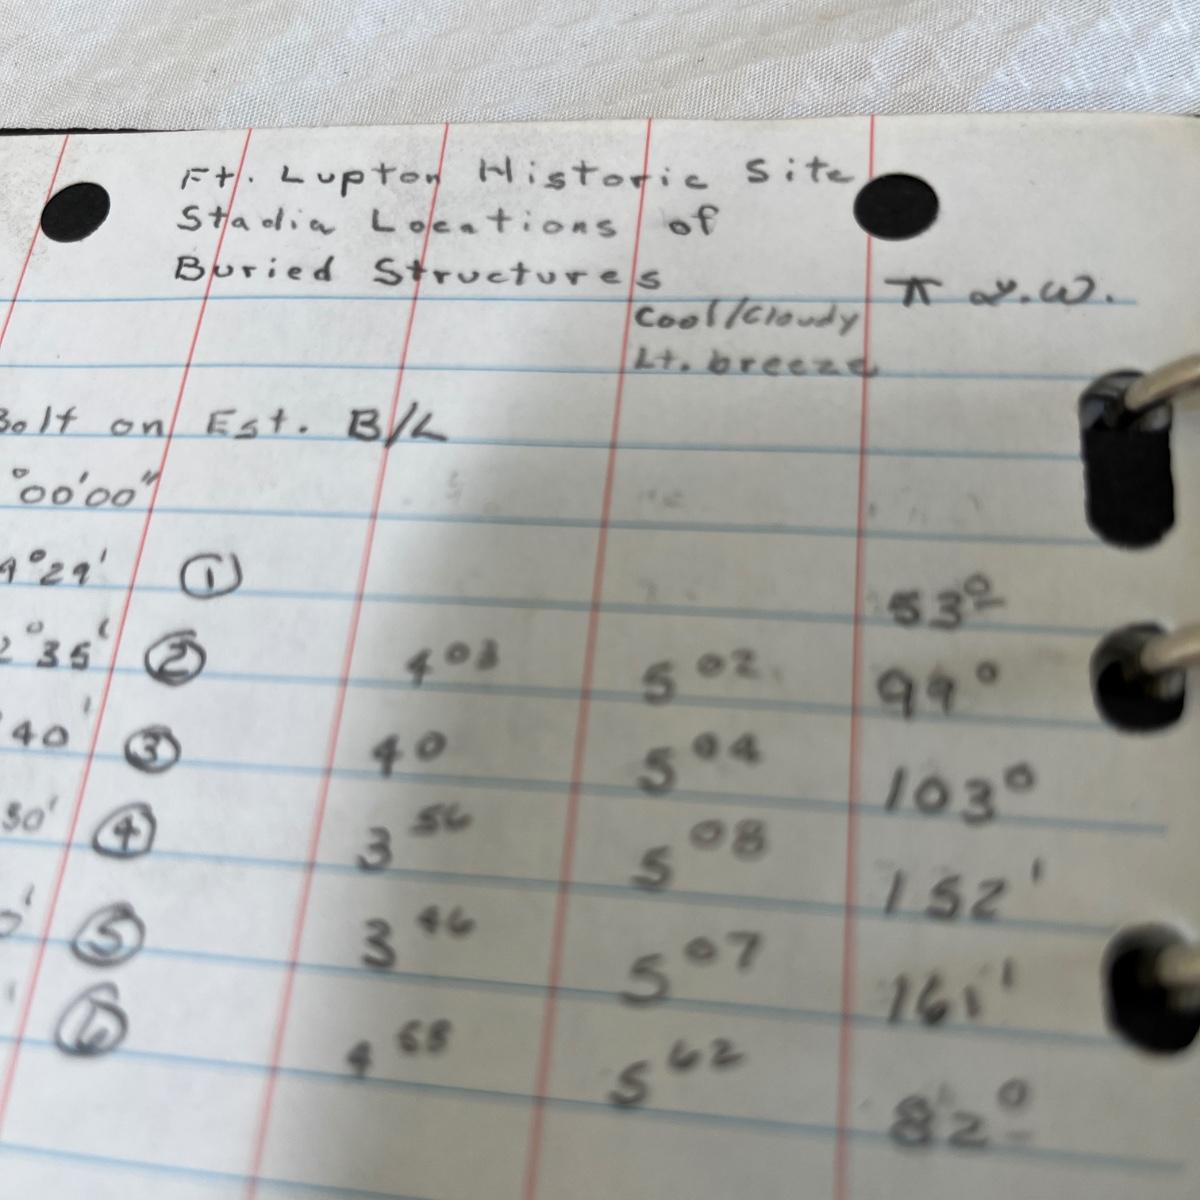 Ft. Lupton Historic Site
Stadia Locations of
Buried Structures
π L.W.
Cool/Cloudy
Lt. breeze
Bolt on Est. B/L
°00'00"
9°29' ① 53º
2°35' ② 4⁰³ 5⁰² 99°
40' ③ 40 5⁰⁴ 103°
30' ④ 3⁵⁶ 5⁰⁸ 152'
0' ⑤ 3⁴⁶ 5⁰⁷ 161'
' ⑥ 5⁶² 82º